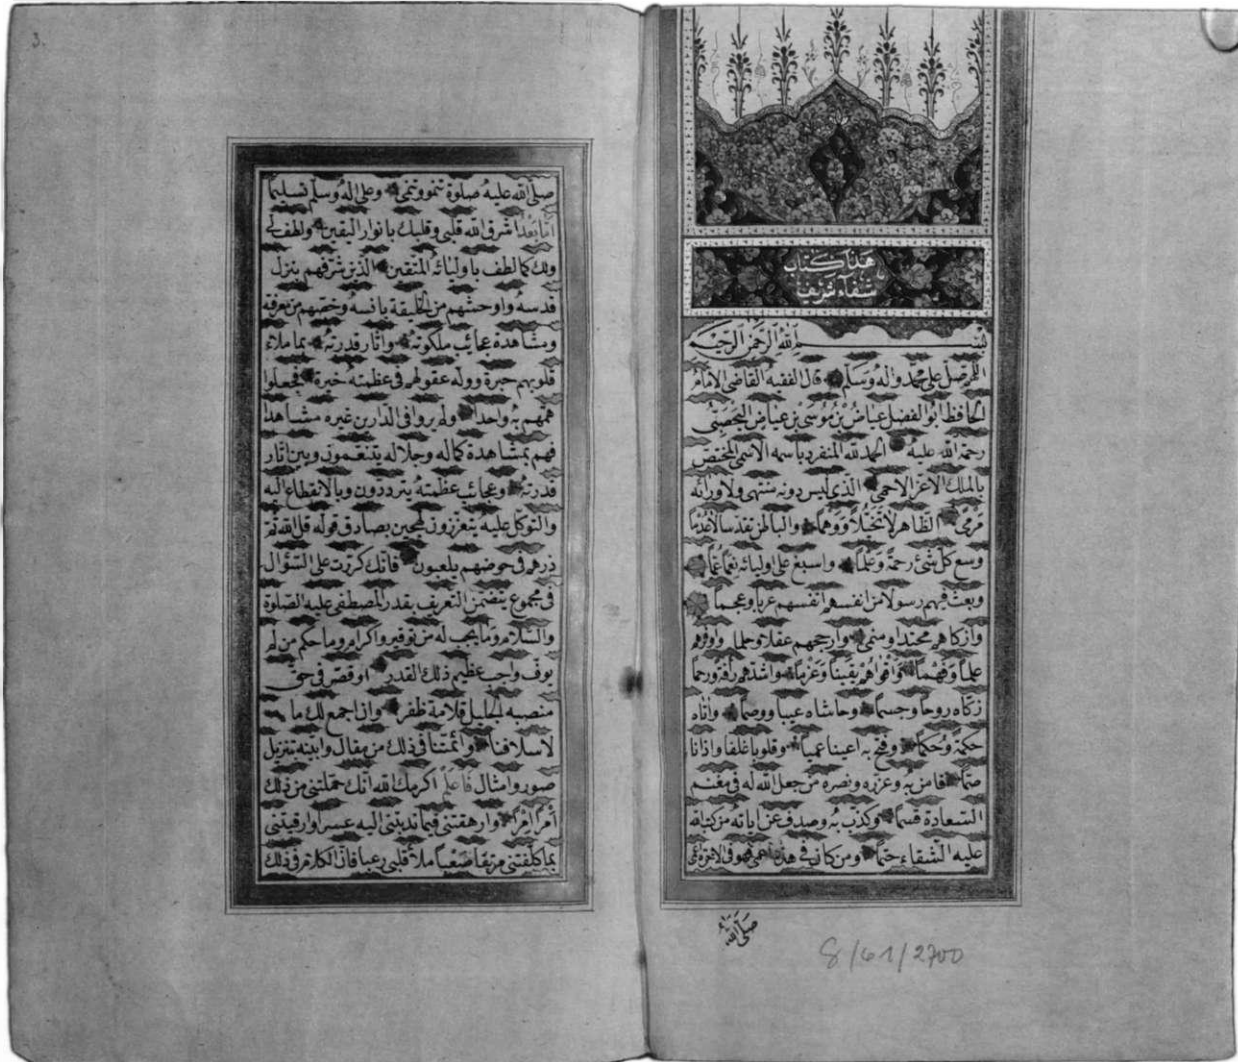 هذا كتاب
شفاء شريف
بسم الله الرحمن الرحيم
اللهم صل على محمد واله وسلم قال الفقيه القاضى الامام
الحافظ ابو الفضل عياض بن موسى بن عياض اليحصبى
رحمة الله عليه الحمد لله المنفرد باسمه الاسمى المختص
بالملك الاعز الاحمى الذى ليس دونه منتهى ولا ورائه
مرمى الظاهر لا تخيلا ووهما والباطن تقدسا لا عدما
وسع كل شئ رحمة وعلما واسبغ على اوليائه نعما عما
وبعث فيهم رسولا من انفسهم انفسهم عربا وعجما
وازكاهم محتدا ومنمى وارجحهم عقلا وحلما واوفرهم
علما وفهما واقواهم يقينا وعزما واشدهم رأفة ورحما
زكاه روحا وجسما وحاشاه عيبا ووصما واتاه
حكمة وحكما وفتح به اعينا عميا وقلوبا غلفا واذانا
صما فامن به وعزره ونصره من جعل الله له فى مغنم
السعادة قسما وكذب به وصدف عن اياته من كتب الله
عليه الشقاء حتما ومن كان فى هذه اعمى فهو فى الاخرة اعمى
صلى الله
8/61/2700
3.
صلى الله عليه صلوة تنمو وتنمى وعلى اله وسلم تسليما
اما بعد اشرق الله قلبى وقلبك بانوار اليقين ولطف لى
ولك كما لطف باوليائه المتقين الذين شرفهم بنزل
قدسه واوحشهم من الخليقة بانسه وخصهم من معرفته
ومشاهدة عجائب ملكوته واثار قدرته بما ملاء
قلوبهم حبرة ووله عقولهم فى عظمته حيرة فجعلوا
همهم به واحدا ولم يروا فى الدارين غيره مشاهدا
فهم بمشاهدة كماله وجلاله يتنعمون وبين اثار
قدرته وعجائب عظمته يترددون وبالانقطاع اليه
والتوكل عليه يتعززون لهجين بصادق قوله قل الله ثم
ذرهم فى خوضهم يلعبون فانك كررت على السؤال
فى مجموع يتضمن التعريف بقدر المصطفى عليه الصلوة
والسلام وما يجب له من توقير واكرام وما حكم من لم
يوف واجب عظيم ذلك القدر او قصر فى حق
منصبه الجليل قلامة ظفر وان اجمع لك ما
لاسلافنا وائمتنا فى ذلك من مقال وابينه بتنزيل
صور وامثال فاعلم اكرمك الله انك حملتنى من ذلك
امرا امرا وارهقتنى فيما ندبتنى اليه عسرا وارقيتنى
بما كلفتنى مرتقا صعبا ملأ قلبى رعبا فان الكلام فى ذلك